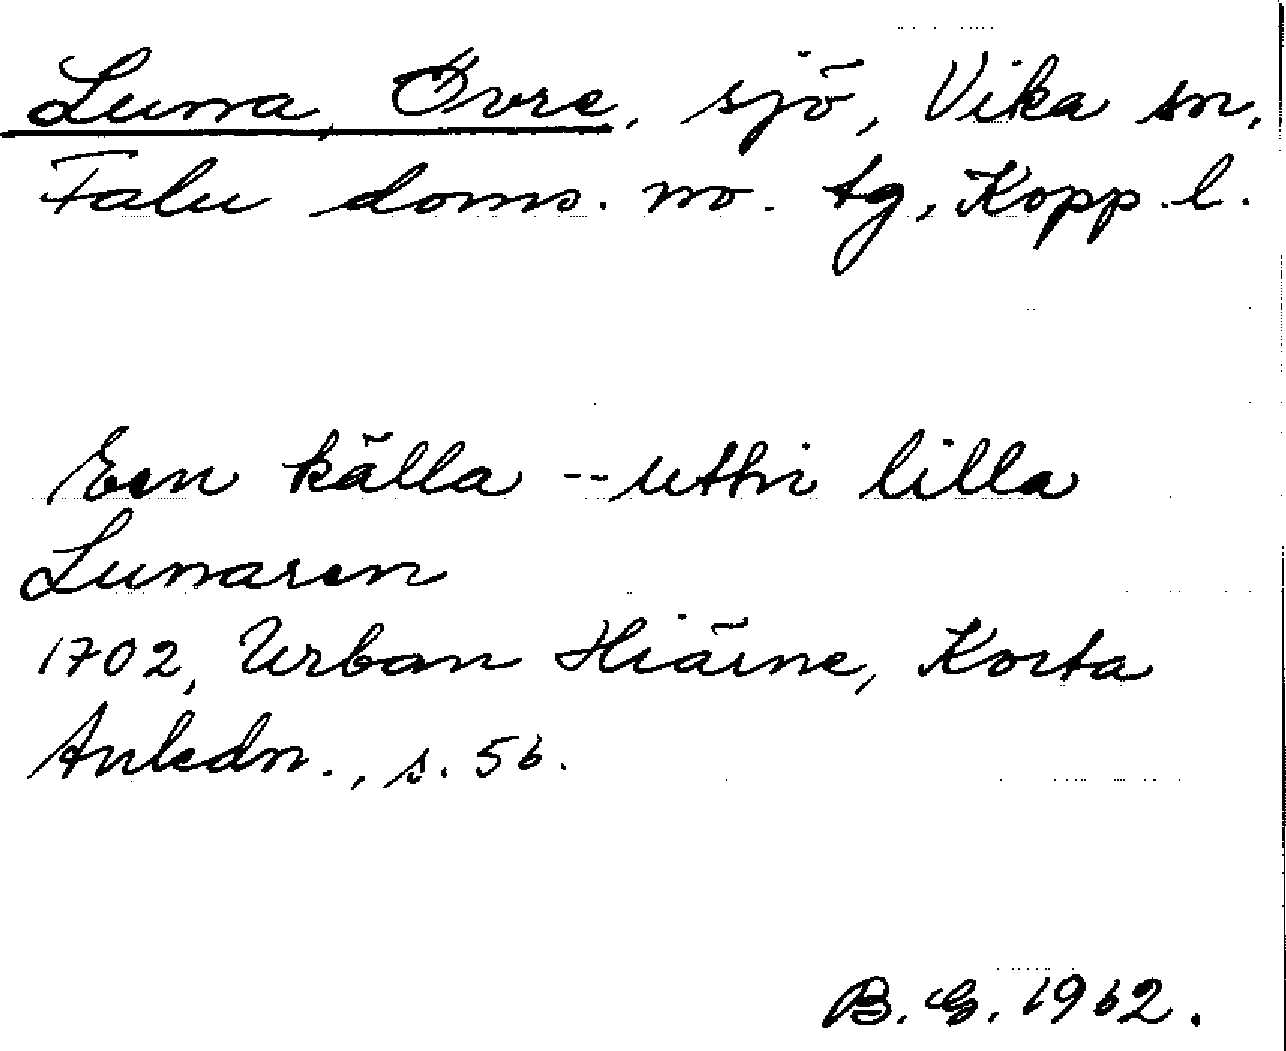 Lunna, Övre, sjö, Vika sn,
Falu doms. no. tg, Kopp. l.
Een källa -- uthi lilla
Lunnaren
1702, Urban Hiärne, Korta
Anledn., s. 56.
B. G. 1962.